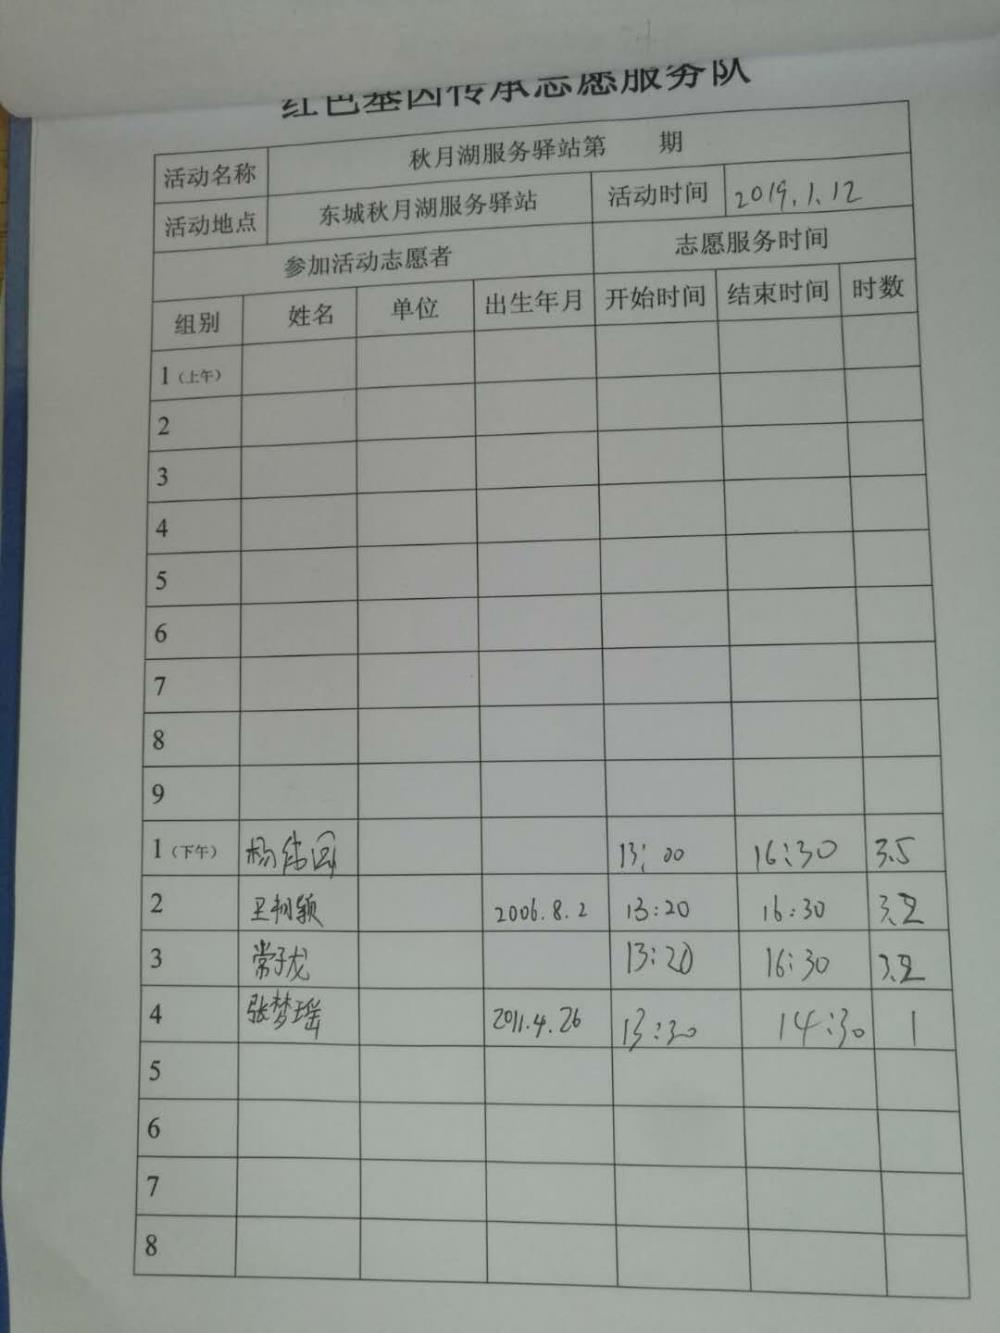 红色基因传承志愿服务队
活动名称 秋月湖服务驿站第 期
活动地点 东城秋月湖服务驿站 活动时间 2019.1.12
参加活动志愿者 志愿服务时间
组别 姓名 单位 出生年月 开始时间 结束时间 时数
1（上午）
2
3
4
5
6
7
8
9
1（下午） 13:00 16:30 3.5
2 2006.8.2 13:20 16:30 3.2
3 常子龙 13:20 16:30 3.2
4 张梦瑶 2011.4.26 13:30 14:30 1
5
6
7
8